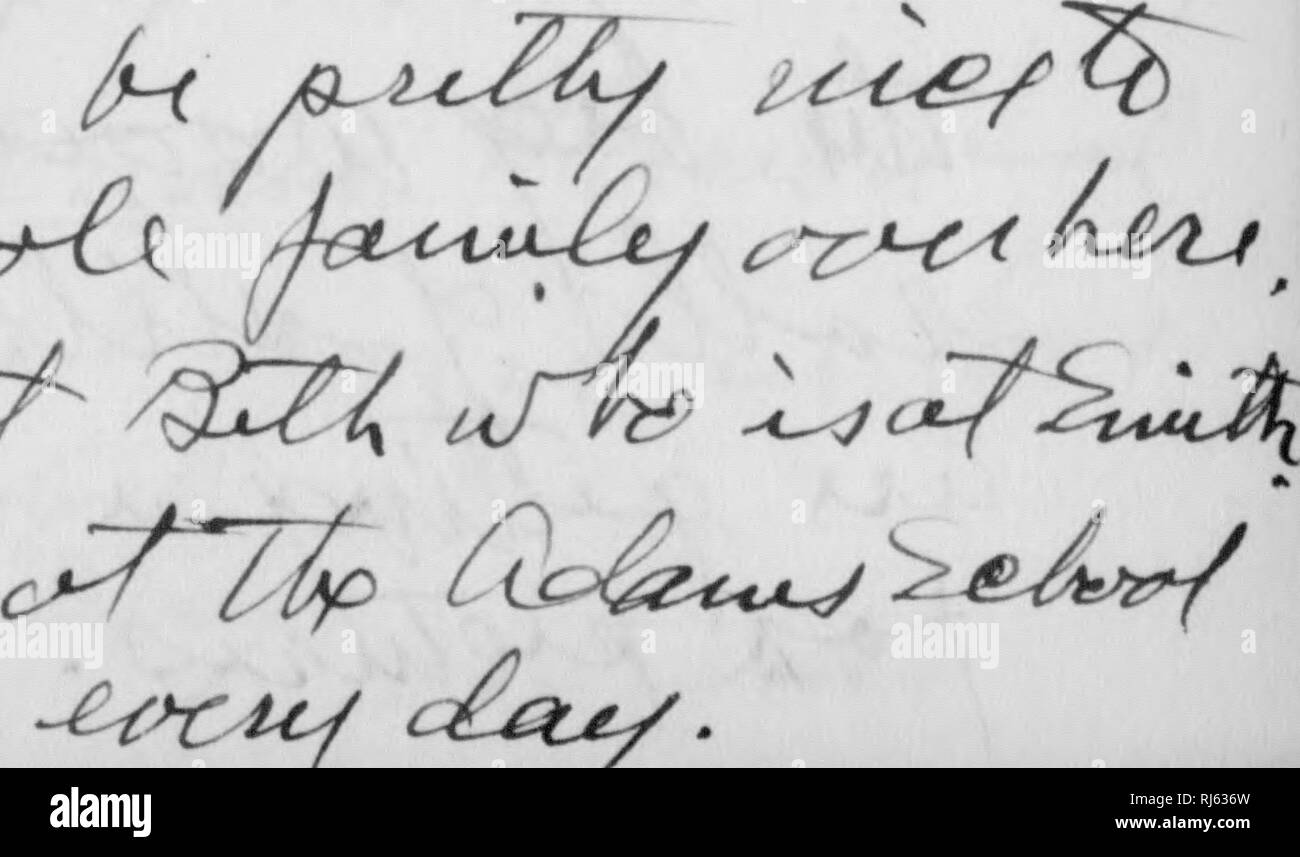 be pretty nice to
ole family over here.
t Beth who is at Smith.
at the Adams School
every day.
alamy
Image ID: RJ636W
www.alamy.com